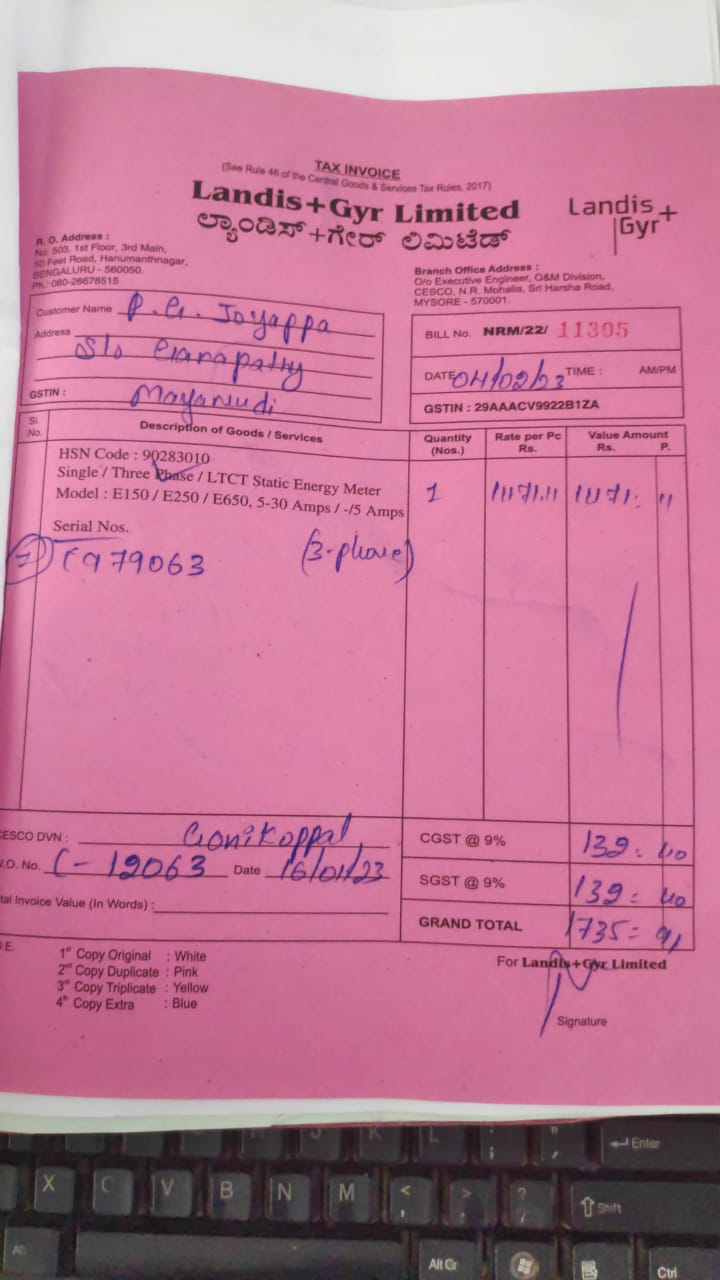 TAX INVOICE
(See Rule 46 of the Central Goods & Services Tax Rules, 2017)
Landis+Gyr Limited
ಲ್ಯಾಂಡಿಸ್+ಗೇರ್ ಲಿಮಿಟೆಡ್
Landis+
Gyr
R. O. Address :
No. 503, 1st Floor, 3rd Main,
50 Feet Road, Hanumanthnagar,
BENGALURU - 560050.
Ph.: 080-26678515
Branch Office Address :
O/o Executive Engineer, O&M Division,
CESCO, N.R. Mohalla, Sri Harsha Road,
MYSORE - 570001.
Customer Name P.G. Joyappa
Address S/o Ganapathy
GSTIN : Mayamudi
BILL No. NRM/22/ 11305
DATE 04/02/23 TIME : AM/PM
GSTIN : 29AAACV9922B1ZA
Sl. No. Description of Goods / Services Quantity (Nos.) Rate per Pc Rs. Value Amount Rs. P.
HSN Code : 90283010
Single / Three Phase / LTCT Static Energy Meter
Model : E150 / E250 / E650, 5-30 Amps / -/5 Amps 1
Serial Nos.
979063 (3-phase)
CESCO DVN : Gonikoppal
CGST @ 9% 139: 40
W.O. No. C-19063 Date 16/01/23
SGST @ 9% 139: 40
Total Invoice Value (In Words) :
GRAND TOTAL 1735= 91
O.E.
1st Copy Original : White
2nd Copy Duplicate : Pink
3rd Copy Triplicate : Yellow
4th Copy Extra : Blue
For Landis+Gyr Limited
Signature
J K L ; : " ' Enter
X C V B N M < , > . ? / Shift
Alt Alt Gr Ctrl